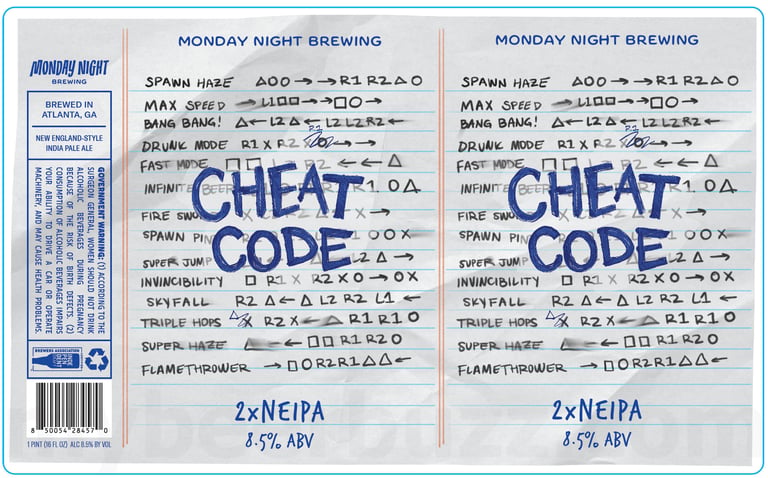 MONDAY NIGHT
BREWING
BREWED IN
ATLANTA, GA
NEW ENGLAND-STYLE
INDIA PALE ALE
GOVERNMENT WARNING: (1) ACCORDING TO THE
SURGEON GENERAL, WOMEN SHOULD NOT DRINK
ALCOHOLIC BEVERAGES DURING PREGNANCY
BECAUSE OF THE RISK OF BIRTH DEFECTS. (2)
CONSUMPTION OF ALCOHOLIC BEVERAGES IMPAIRS
YOUR ABILITY TO DRIVE A CAR OR OPERATE
MACHINERY, AND MAY CAUSE HEALTH PROBLEMS.
BREWERS ASSOCIATION
8 50054 28457 0
1 PINT (16 FL OZ) ALC 8.5% BY VOL
MONDAY NIGHT BREWING
SPAWN HAZE △OO→→R1 R2△O
MAX SPEED →L1□□→→□O→
BANG BANG! △←L2△←L2 L2R2←
DRUNK MODE R1 X R2 →→
FAST MODE □ □ R2 ←←△
INFINITE BEER R1 O△
FIRE X→
SPAWN OOX
SUPER JUMP L2△→
INVINCIBILITY □ R1 X R2XO→OX
SKYFALL R2△←△L2 R2 L1←
TRIPLE HOPS R2 X←△R1 R1O
SUPER HAZE △←□□R1 R2O
FLAMETHROWER →□OR2R1△△←
CHEAT
CODE
2xNEIPA
8.5% ABV
MONDAY NIGHT BREWING
SPAWN HAZE △OO→→R1 R2△O
MAX SPEED →L1□□→→□O→
BANG BANG! △←L2△←L2 L2R2←
DRUNK MODE R1 X R2 →→
FAST MODE □ □ R2 ←←△
INFINITE BEER R1 O△
FIRE X→
SPAWN OOX
SUPER JUMP L2△→
INVINCIBILITY □ R1 X R2XO→OX
SKYFALL R2△←△L2 R2 L1←
TRIPLE HOPS R2 X←△R1 R1O
SUPER HAZE △←□□R1 R2O
FLAMETHROWER →□OR2R1△△←
CHEAT
CODE
2xNEIPA
8.5% ABV